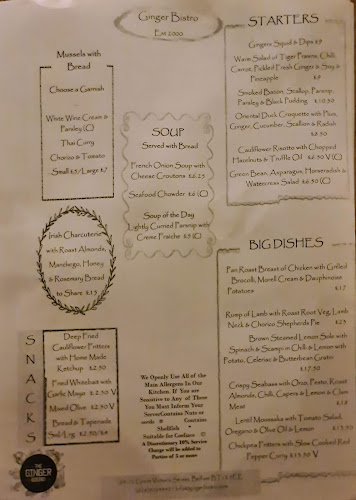 Ginger Bistro
Est 2000
Mussels with
Bread
Choose a Garnish
White Wine Cream &
Parsley (C)
Thai Curry
Chorizo & Tomato
Small $5/Large $7
SOUP
Served with Bread
French Onion Soup with
Cheese Croutons £6.25
Seafood Chowder £6 (C)
Soup of the Day
Lightly Curried Parsnip with
Creme Fraiche £5 (C)
Irish Charcuterie
with Roast Almonds,
Manchego, Honey
& Rosemary Bread
to Share £15
SNACKS
Deep Fried
Cauliflower Fritters
with Home Made
Ketchup £2.50
Fried Whitebait with
Garlic Mayo £2.50
Mixed Olive £2.50
Bread & Tapenade
We Openly Use All of the
Main Allergens In Our
Kitchen. If You are
Sensitive to Any of These
You Must Inform Your
Server Contains Nuts or
seeds
Contains
Shellfish *
Suitable for Coeliacs ©
A Discretionary 10% Service
Charge will be added to
Parties of 5 or more
STARTERS
Gingers Squid & Dips £9
Warm Salad of Tiger Prawns, Chili,
Carrot, Pickled Fresh Ginger & Soy &
Pineapple £9
Smoked Bacon, Scallop, Parsnip,
Parsley & Black Pudding £10.50
Oriental Duck Croquette with Plum,
Ginger, Cucumber, Scallion & Radish
£8.50
Cauliflower Risotto with Chopped
Hazelnuts & Truffle Oil £6.50 V (C)
Green Bean, Asparagus, Horseradish &
Watercress Salad £6.50 (C)
BIG DISHES
Pan Roast Breast of Chicken with Grilled
Broccoli, Morell Cream & Dauphinoise
Potatoes £17
Rump of Lamb with Roast Root Veg, Lamb
Neck & Chorizo Shepherds Pie £23
Brown Steamed Lemon Sole with
Spinach & Scampi in Chili & Lemon with
Potato, Celeriac & Butterbean Gratin
£17.50
Crispy Seabass with Orzo, Pesto, Roast
Almonds, Chili, Capers & Lemon & Clam
Lentil Moussaka with Tomato Salad,
Oregano & Olive Oil & Lemon £15.50
Chickpea Fritters with Slow Cooked Red
Pepper Curry £15.50 V
THE
GINGER
BISTRO